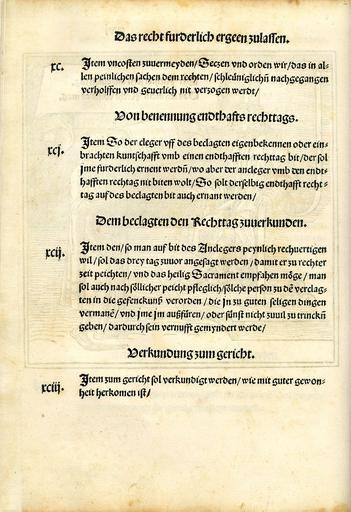 Das recht furderlich ergeen zulassen.
xc. Item vncosten zuuermeyden/ Setzen vnd orden wir/ das in al-
len peinlichen sachen dem rechten/ schleüniglichñ nachgegangen
verholffen vnd geuerlich nit verzogen werdt/
Von benennung endthaffts rechttags.
xcj. Item So der cleger vff des beclagten eigenbekennen oder ein-
brachten kuntschafft vmb einen endthafften rechttag bit/ der sol
jme fürderlich ernent werdñ/ wo aber der ancleger vmb den endt-
hafften rechtag nit biten wolt/ So solt derselbig endthafft recht-
tag auf des beclagten bit auch ernant werden/
Dem beclagten den Rechttag zuuerkunden.
xcij. Item den/ so man auf bit des Anclegers peynlich rechuertigen
wil/ sol das drey tag zuuor angesagt werden/ damit er zu rechter
zeit peichten/ vnd das heilig Sacrament empfahen möge/ man
sol auch nach söllicher peicht pfleglich/ sölche person zu dē verclag-
ten in die gefencknuß verorden/ die jn zu guten seligen dingen
vermanē/ vnd jme jm außfüren/ oder sünst nicht zuuil zu trinckñ
geben/ dardurch sein vernufft gemyndert werde/
Verkundung zum gericht.
xciij. Item zum gericht sol verkundigt werden/ wie mit guter gewon-
heit herkomen ist/